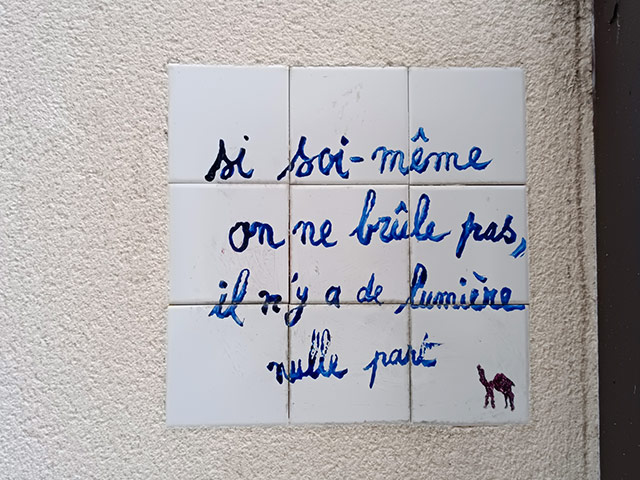 si soi-même
on ne brûle pas,
il n'y a de lumière
nulle part